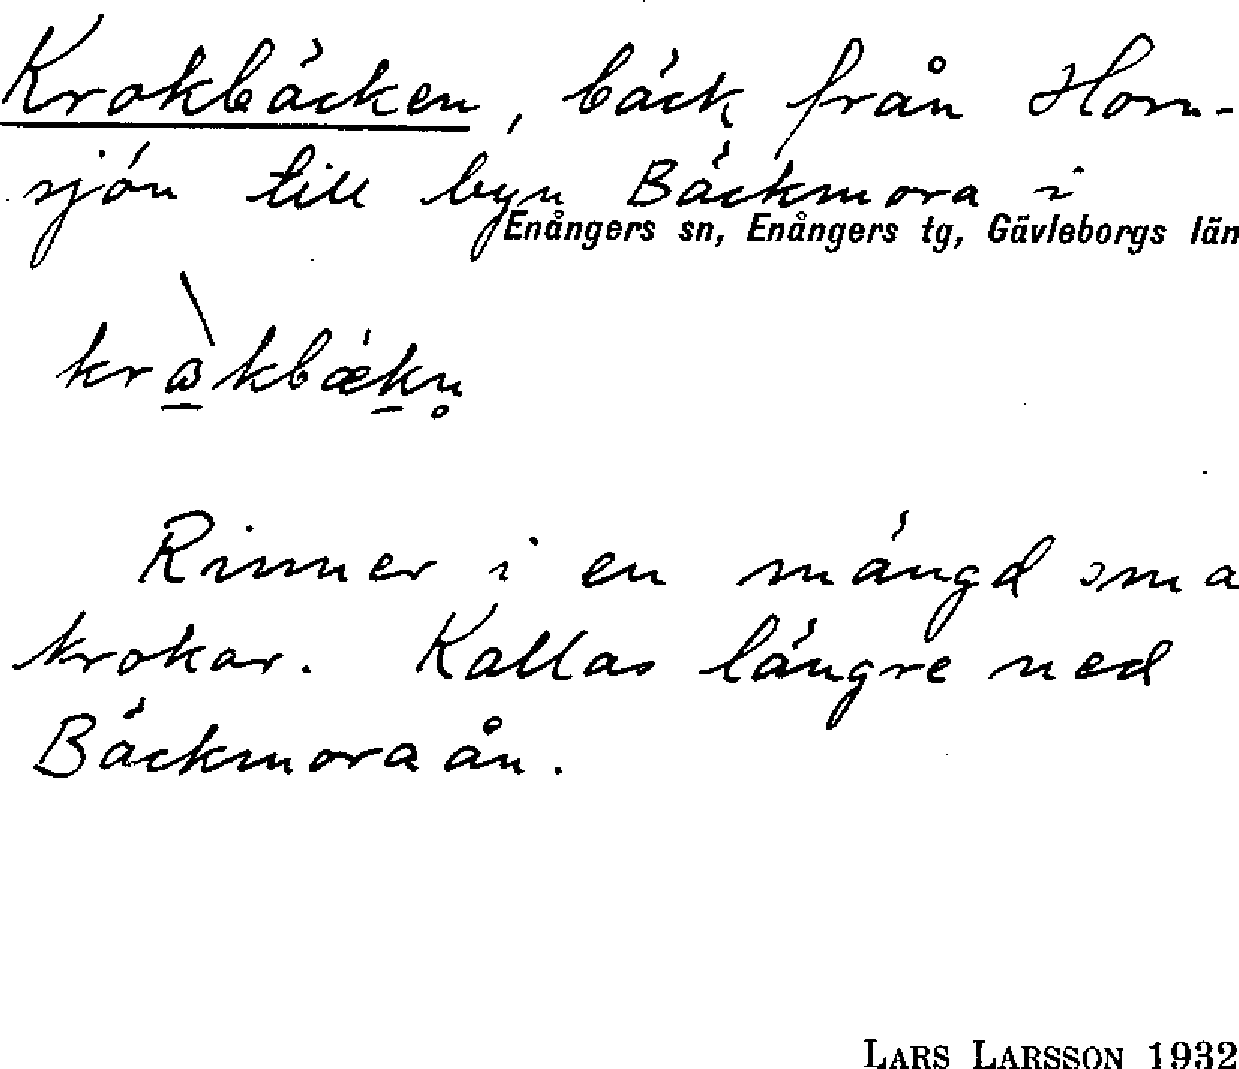 Krokbäcken, bäck från Horn-
sjön till byn Bäckmora i
Enångers sn, Enångers tg, Gävleborgs län
Rinner i en mängd små
krokar. Kallas längre ned
Bäckmoraån.
LARS LARSSON 1932